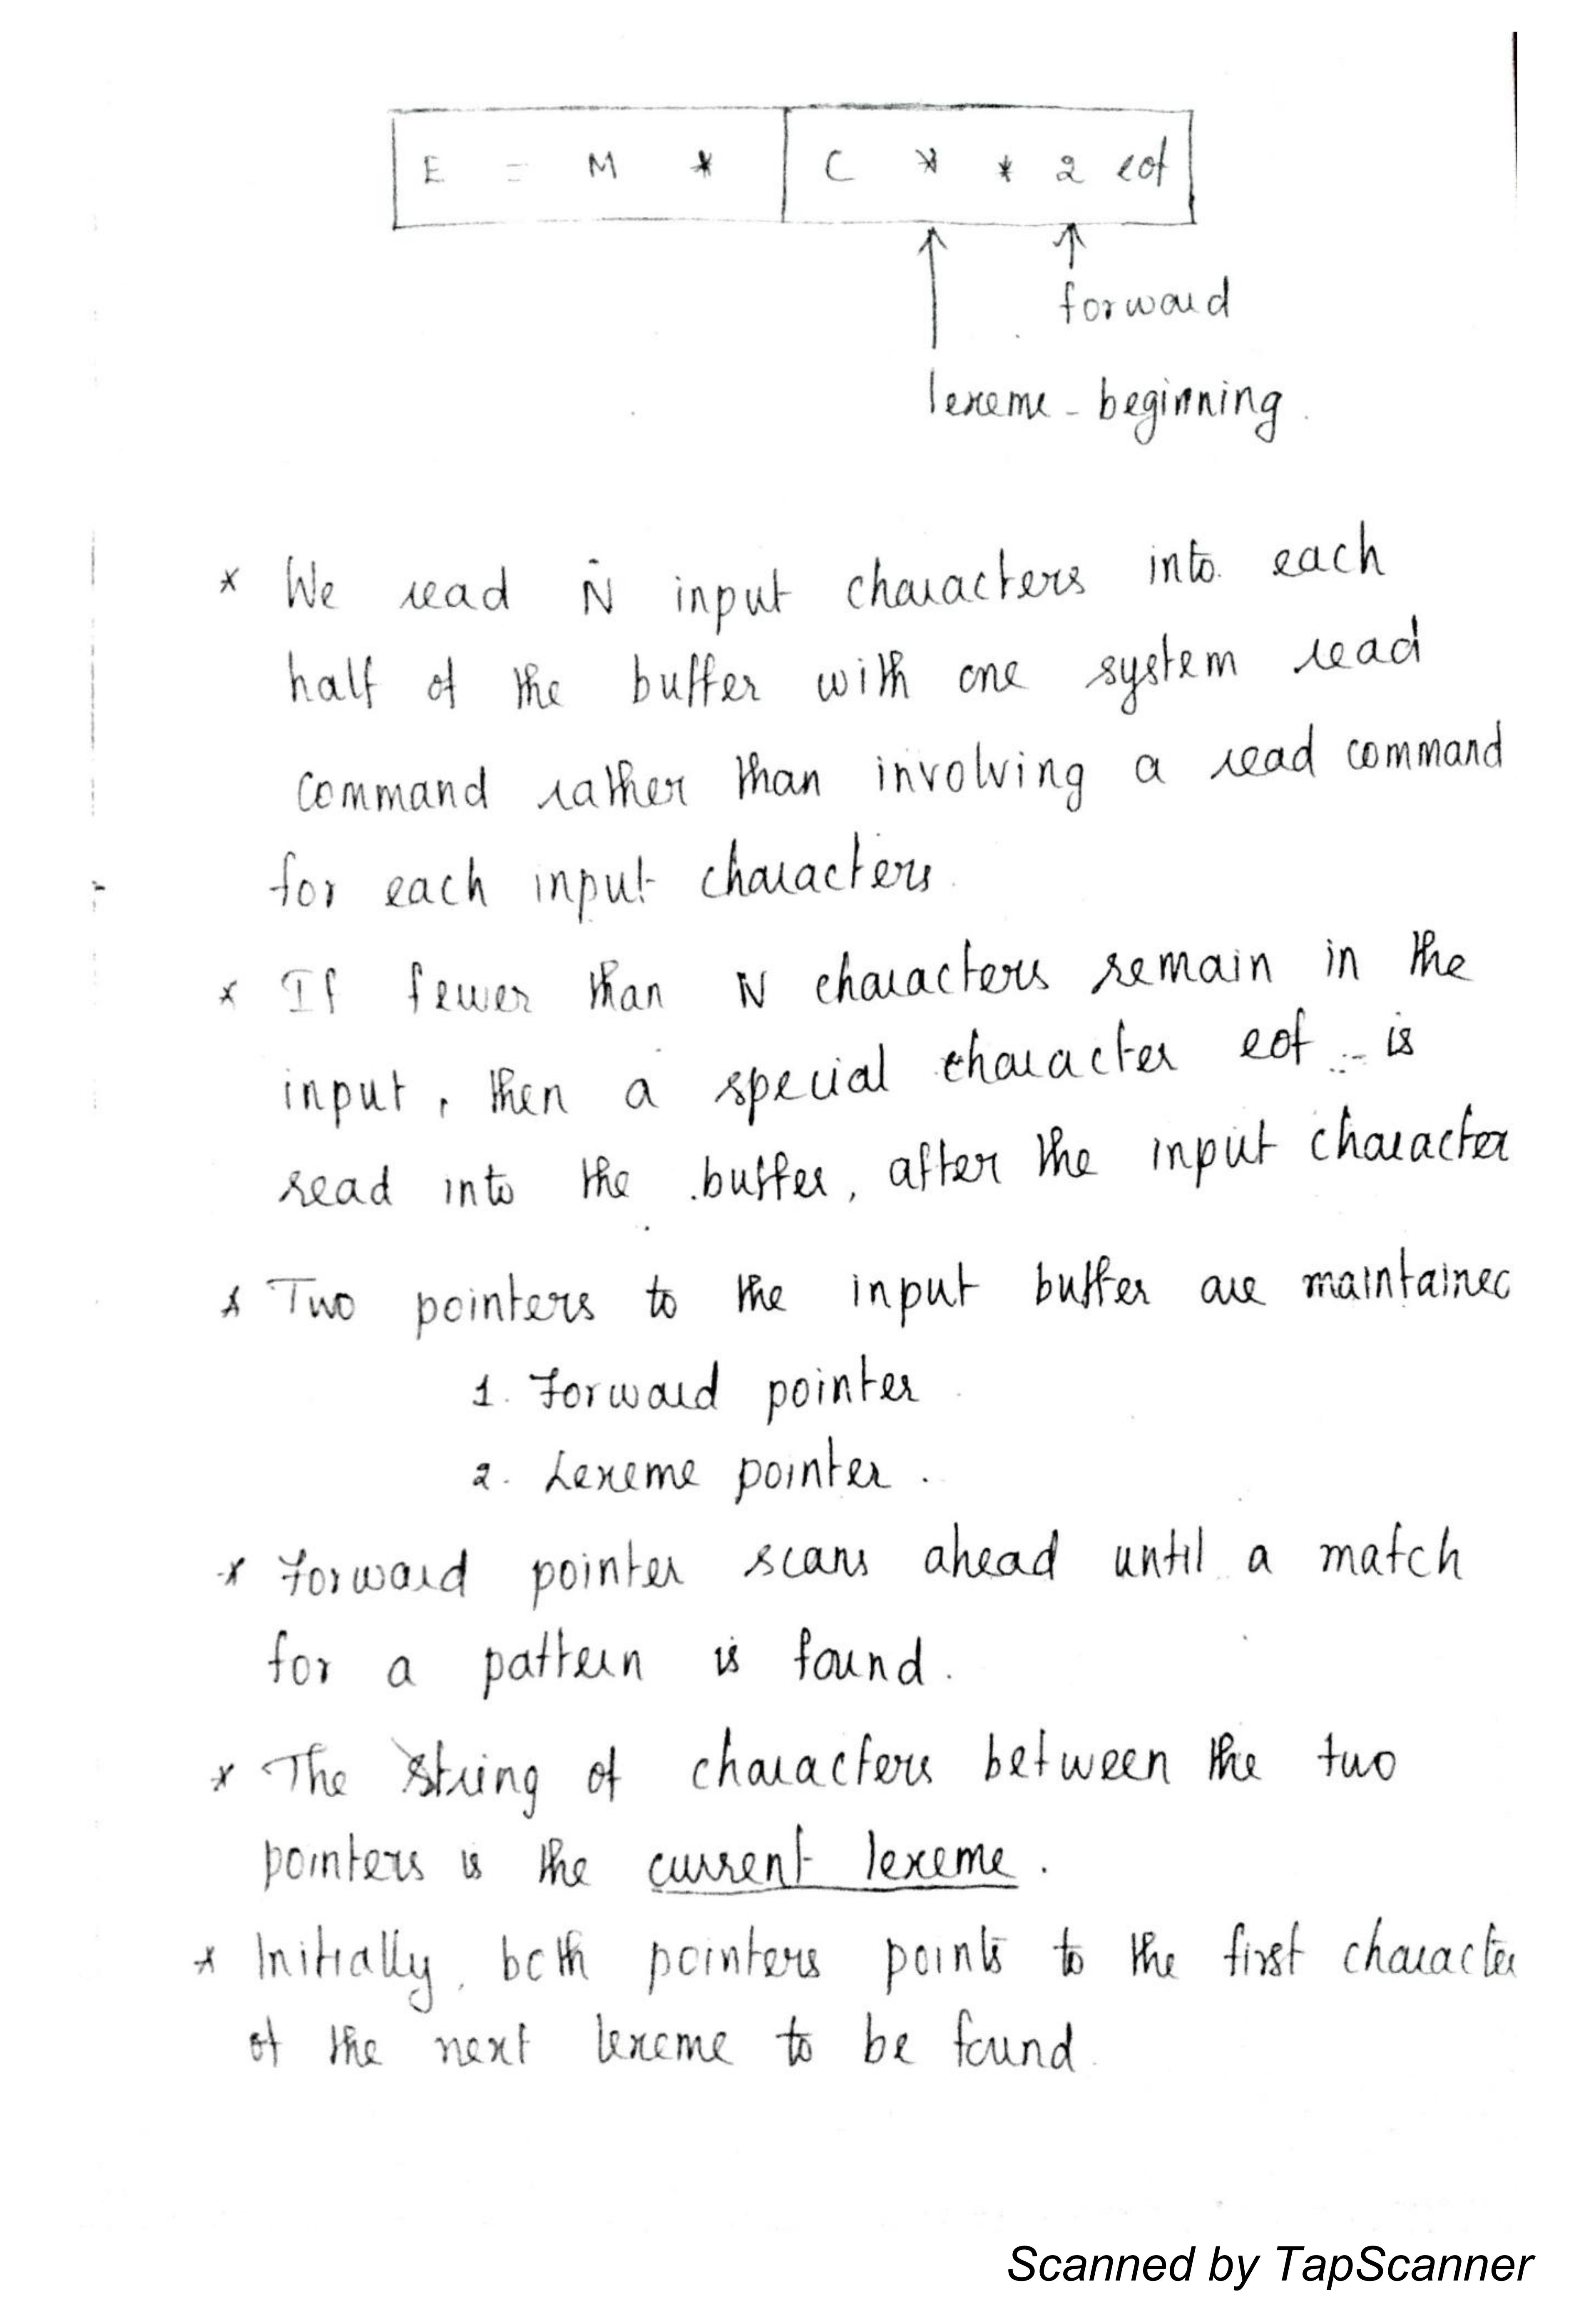 E = M * C * * 2 eof
forward
lexeme - beginning
* We read N input characters into each
half of the buffer with one system read
command rather than involving a read command
for each input characters.
* If fewer than N characters remain in the
input, then a special character eof is
read into the buffer, after the input character
* Two pointers to the input buffer are maintained
1. Forward pointer
2. Lexeme pointer.
* Forward pointer scans ahead until a match
for a pattern is found.
* The string of characters between the two
pointers is the current lexeme.
* Initially, both pointers points to the first character
of the next lexeme to be found.
Scanned by TapScanner